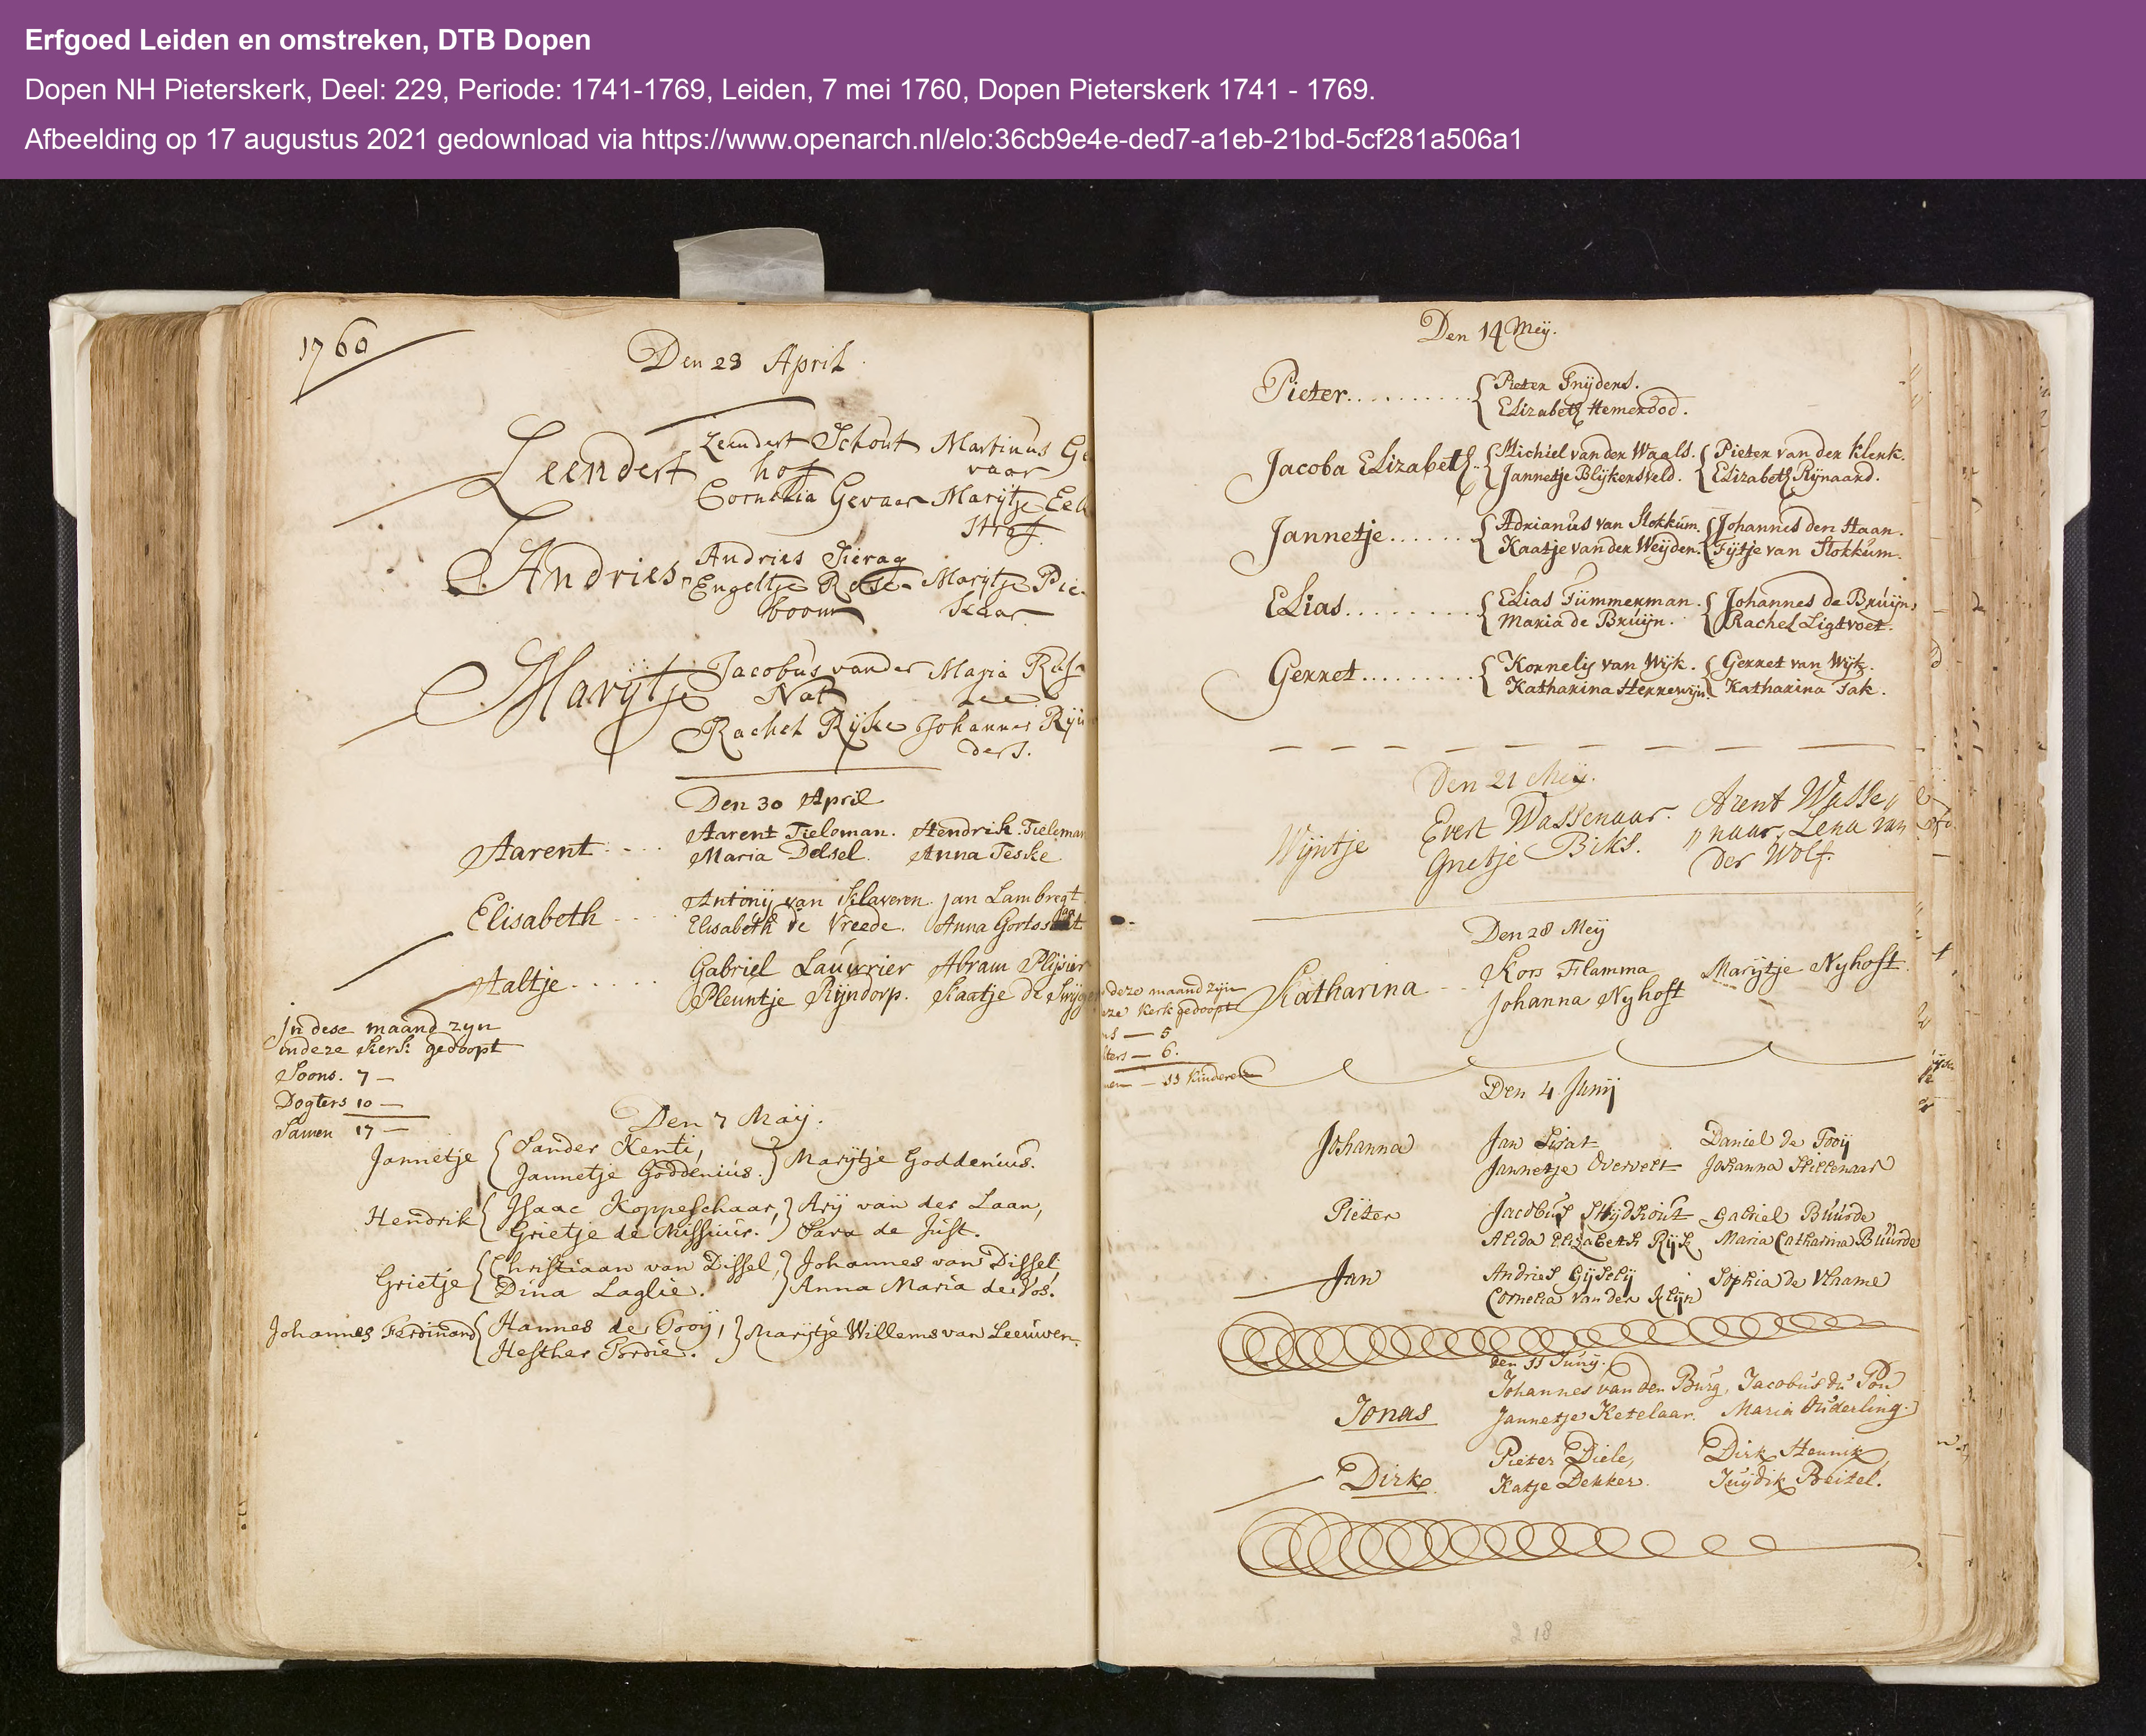 Erfgoed Leiden en omstreken, DTB Dopen
Dopen NH Pieterskerk, Deel: 229, Periode: 1741-1769, Leiden, 7 mei 1760, Dopen Pieterskerk 1741 - 1769.
Afbeelding op 17 augustus 2021 gedownload via https://www.openarch.nl/elo:36cb9e4e-ded7-a1eb-21bd-5cf281a506a1
1760
Den 23 April
Leendert Schout Martinus Ge
Leendert hof vaar
Cornelia Gevaar Marijtje Eek
Strof.
Andries Sierag
Andries Engeltje Rose- Marijtje Pie-
boom kaar
Jacobus vander Maria Rus
Marijtje Nat Lee
Rachel Rijke Johannes Rijn
ders.
Den 30 April
Aarent Tieleman. Hendrik Tieleman
Aarent Maria Delsel. Anna Teske
Antonij van Klaveren. Jan Lambregt
Elisabeth Elisabeth de Vreede. Anna
Gabriel Lauwrier Abram Plijsier
Aaltje Pleuntje Rijndorp. Kaatje de
In dese maand zyn
indeze Kerk gedoopt
Soons. 7 —
Dogters 10 —
Samen 17 —
Den 7 Maij.
Jannetje { Sander Kenti, } Marijtje Goddenius.
Jannetje Goddenius.
Hendrik { Isaac Koppeschaar, } Arij van der Laan,
Grietje de Missiur. Sara de Just.
Grietje { Christiaan van Dissel, } Johannes van Dissel
Dina Laglie. Anna Maria de Vos.
Johannes Ferdinand { Hannes de Rooij, } Marijtje Willems van Leeuwen.
Hesther Tordie.
Den 14 Meij.
Pieter......... { Pieter Snijders.
Elizabeth Hemerood.
Jacoba Elizabeth.. { Michiel van der Waals. { Pieter van der Klenk.
Jannetje Blijkersveld. Elizabeth Rijnaard.
Jannetje...... { Adrianus van Stokkum. { Johannes den Haan.
Kaatje van der Weijden. Fijtje van Stokkum.
Elias......... { Elias Tummerman. { Johannes de Bruijn.
Maria de Bruijn. Rachel Ligtvoet.
Gerret......... { Kornelis van Wijk. { Gerret van Wijk.
Katharina Herrewijn. Katharina Tak.
Den 21 Meij.
Evert Wassenaar. Arent Wasse„
Wijntje Grietje Biks. „naar, Lena van
der Wolf.
Den 28 Meij
Kors Flamma Marijtje Nyhoft.
Katharina Johanna Nyhoft
deze maand zijn
eze Kerk gedoopt
ns — 5
ters — 6.
men — 11 Kinderen
Den 4 Junij
Johanna Jan Daniel de Tooij
Jannetje Overvelt Johanna
Pieter Jacobus Gabriel Buurde
Alida Elizabeth Rijk Maria Catharina Buurde
Jan Andries Gijselij Sophia de Vlaame
Cornelia van der Klijn
den 11 Junij.
Johannes van den Burg, Jacobus du Pon
Jonas Jannetje Ketelaar. Maria Ouderling.
Pieter Diele, Dirk Hennik,
Dirk Katje Dekker. Juijdik Beitel.
218